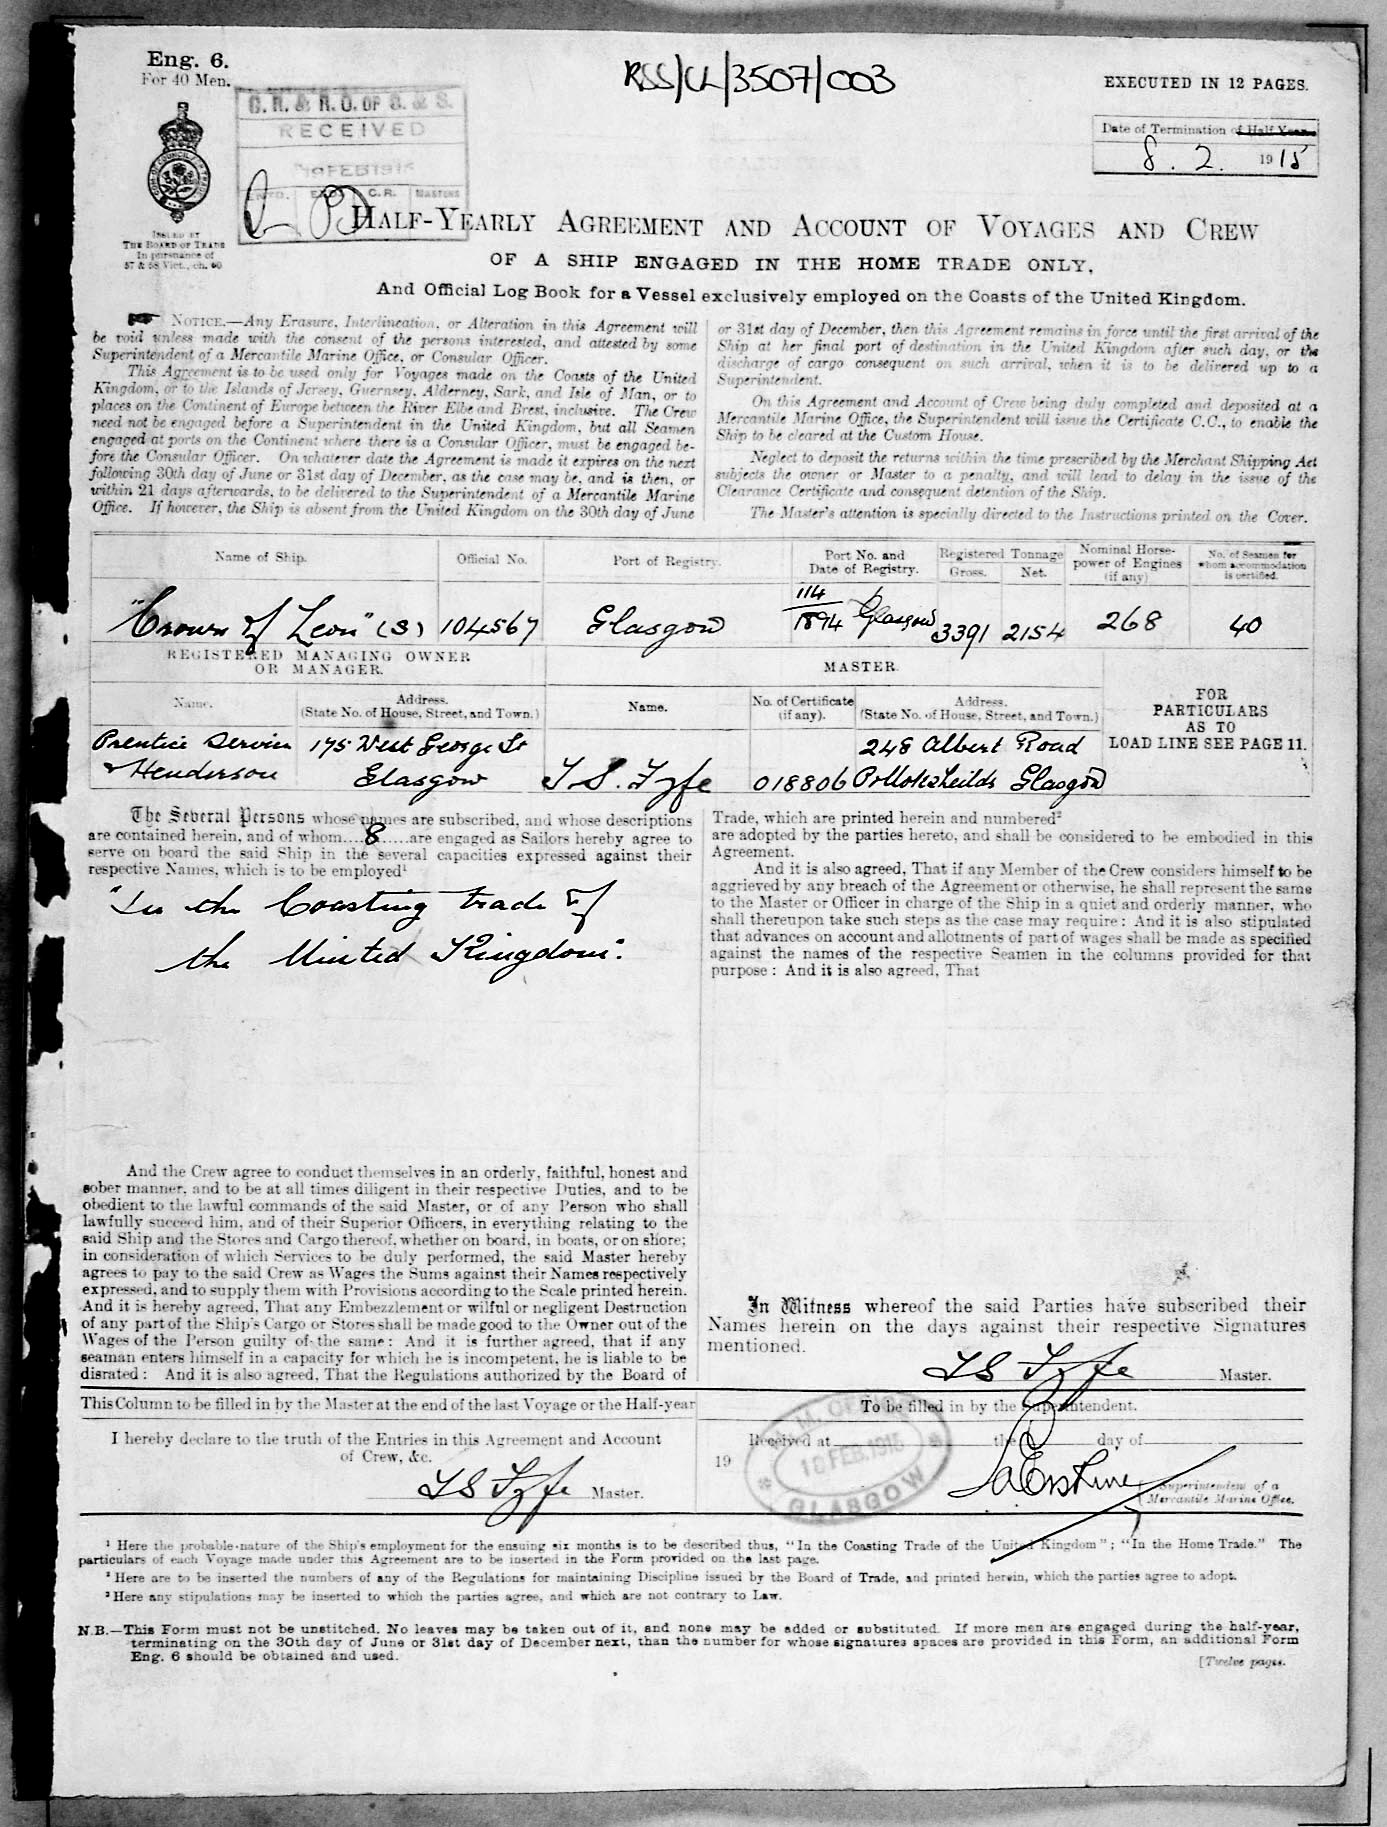 Eng. 6.
For 40 Men.
RSS/CL/3507/003
EXECUTED IN 12 PAGES.
C. R. & R. O. OF S. & S.
RECEIVED
FEB 1915
C.R. MASTERS
Date of Termination of Half Year
8. 2. 1915
ISSUED BY
THE BOARD OF TRADE
In pursuance of
57 & 58 Vict., ch. 60
HALF-YEARLY AGREEMENT AND ACCOUNT OF VOYAGES AND CREW
OF A SHIP ENGAGED IN THE HOME TRADE ONLY,
And Official Log Book for a Vessel exclusively employed on the Coasts of the United Kingdom.
NOTICE.—Any Erasure, Interlineation, or Alteration in this Agreement will
be void unless made with the consent of the persons interested, and attested by some
Superintendent of a Mercantile Marine Office, or Consular Officer.
This Agreement is to be used only for Voyages made on the Coasts of the United
Kingdom, or to the Islands of Jersey, Guernsey, Alderney, Sark, and Isle of Man, or to
places on the Continent of Europe between the River Elbe and Brest, inclusive. The Crew
need not be engaged before a Superintendent in the United Kingdom, but all Seamen
engaged at ports on the Continent where there is a Consular Officer, must be engaged be-
fore the Consular Officer. On whatever date the Agreement is made it expires on the next
following 30th day of June or 31st day of December, as the case may be, and is then, or
within 21 days afterwards, to be delivered to the Superintendent of a Mercantile Marine
Office. If however, the Ship is absent from the United Kingdom on the 30th day of June
or 31st day of December, then this Agreement remains in force until the first arrival of the
Ship at her final port of destination in the United Kingdom after such day, or the
discharge of cargo consequent on such arrival, when it is to be delivered up to a
Superintendent.
On this Agreement and Account of Crew being duly completed and deposited at a
Mercantile Marine Office, the Superintendent will issue the Certificate C.C., to enable the
Ship to be cleared at the Custom House.
Neglect to deposit the returns within the time prescribed by the Merchant Shipping Act
subjects the owner or Master to a penalty, and will lead to delay in the issue of the
Clearance Certificate and consequent detention of the Ship.
The Master's attention is specially directed to the Instructions printed on the Cover.
Name of Ship.
Official No.
Port of Registry.
Port No. and
Date of Registry.
Registered Tonnage
Gross. Net.
Nominal Horse-
power of Engines
(if any)
No. of Seamen for
whom accommodation
is certified.
"Crown of Leon" (S) 104567 Glasgow 114/1894 Glasgow 3391 2154 268 40
REGISTERED MANAGING OWNER
OR MANAGER.
MASTER.
Name.
Address.
(State No. of House, Street, and Town.)
Name.
No. of Certificate
(if any).
Address.
(State No. of House, Street, and Town.)
FOR
PARTICULARS
AS TO
LOAD LINE SEE PAGE 11.
Prentice Service 175 West George St 248 Albert Road
& Henderson Glasgow T S. Fyfe 018806 Pollokshields Glasgow
The Several Persons whose names are subscribed, and whose descriptions
are contained herein, and of whom....8.....are engaged as Sailors hereby agree to
serve on board the said Ship in the several capacities expressed against their
respective Names, which is to be employed¹
"In the Coasting trade of
the United Kingdom".
Trade, which are printed herein and numbered²
are adopted by the parties hereto, and shall be considered to be embodied in this
Agreement.
And it is also agreed, That if any Member of the Crew considers himself to be
aggrieved by any breach of the Agreement or otherwise, he shall represent the same
to the Master or Officer in charge of the Ship in a quiet and orderly manner, who
shall thereupon take such steps as the case may require: And it is also stipulated
that advances on account and allotments of part of wages shall be made as specified
against the names of the respective Seamen in the columns provided for that
purpose: And it is also agreed, That
And the Crew agree to conduct themselves in an orderly, faithful, honest and
sober manner, and to be at all times diligent in their respective Duties, and to be
obedient to the lawful commands of the said Master, or of any Person who shall
lawfully succeed him, and of their Superior Officers, in everything relating to the
said Ship and the Stores and Cargo thereof, whether on board, in boats, or on shore;
in consideration of which Services to be duly performed, the said Master hereby
agrees to pay to the said Crew as Wages the Sums against their Names respectively
expressed, and to supply them with Provisions according to the Scale printed herein.
And it is hereby agreed, That any Embezzlement or wilful or negligent Destruction
of any part of the Ship's Cargo or Stores shall be made good to the Owner out of the
Wages of the Person guilty of the same: And it is further agreed, that if any
seaman enters himself in a capacity for which he is incompetent, he is liable to be
disrated: And it is also agreed, That the Regulations authorized by the Board of
In Witness whereof the said Parties have subscribed their
Names herein on the days against their respective Signatures
mentioned.
T S Fyfe Master.
This Column to be filled in by the Master at the end of the last Voyage or the Half-year
I hereby declare to the truth of the Entries in this Agreement and Account
of Crew, &c.
T S Fyfe Master.
To be filled in by the Superintendent.
Received at the day of
19
M. M. OFFICE
18 FEB. 1915
GLASGOW
Erskine
Superintendent of a
Mercantile Marine Office.
¹ Here the probable nature of the Ship's employment for the ensuing six months is to be described thus, "In the Coasting Trade of the United Kingdom"; "In the Home Trade." The
particulars of each Voyage made under this Agreement are to be inserted in the Form provided on the last page.
² Here are to be inserted the numbers of any of the Regulations for maintaining Discipline issued by the Board of Trade, and printed herein, which the parties agree to adopt.
³ Here any stipulations may be inserted to which the parties agree, and which are not contrary to Law.
N.B.—This Form must not be unstitched. No leaves may be taken out of it, and none may be added or substituted. If more men are engaged during the half-year,
terminating on the 30th day of June or 31st day of December next, than the number for whose signatures spaces are provided in this Form, an additional Form
Eng. 6 should be obtained and used.
[Twelve pages.